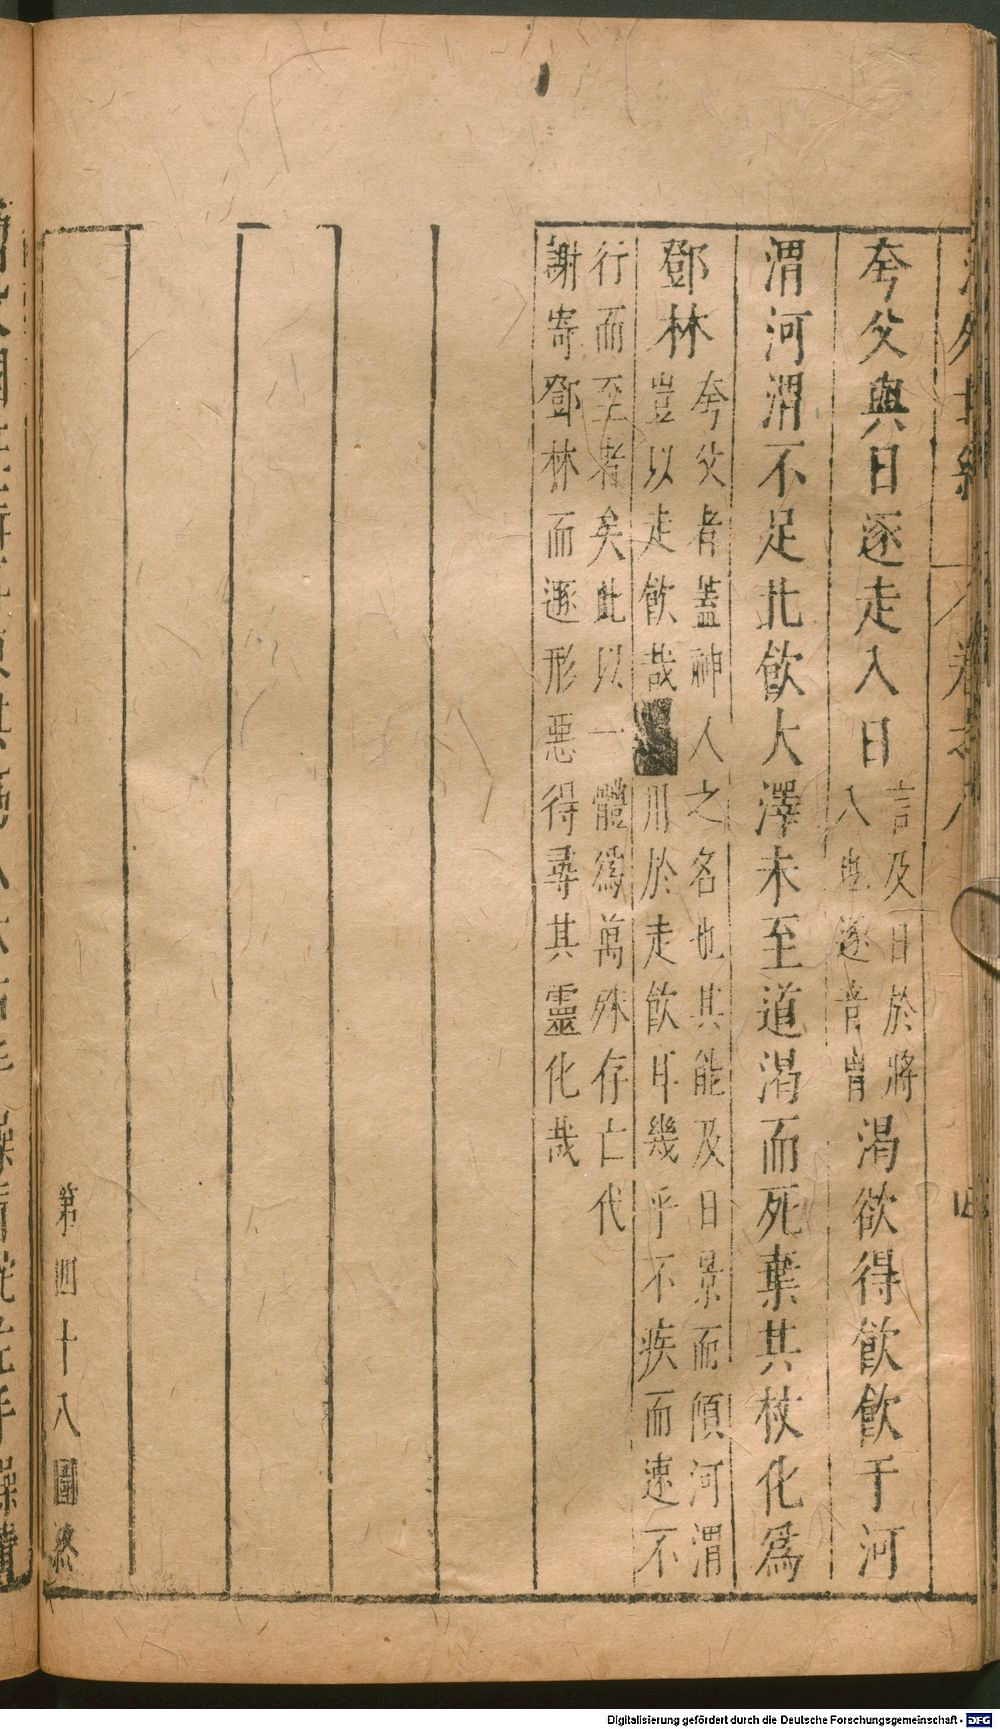 夸父與日逐走入日言及日於將渴欲得飮飮于河
入也逐音胄
渭河渭不足北飮大澤未至道渴而死棄其杖化爲
鄧林夸父者蓋神人之名也其能及日景而傾河渭
豈以走飮哉 用於走飮耳幾乎不疾而速不
行而至者矣此以一體爲萬殊存亡代
謝寄鄧林而遯形惡得尋其靈化哉
第四十八圖終
Digitalisierung gefördert durch die Deutsche Forschungsgemeinschaft - DFG